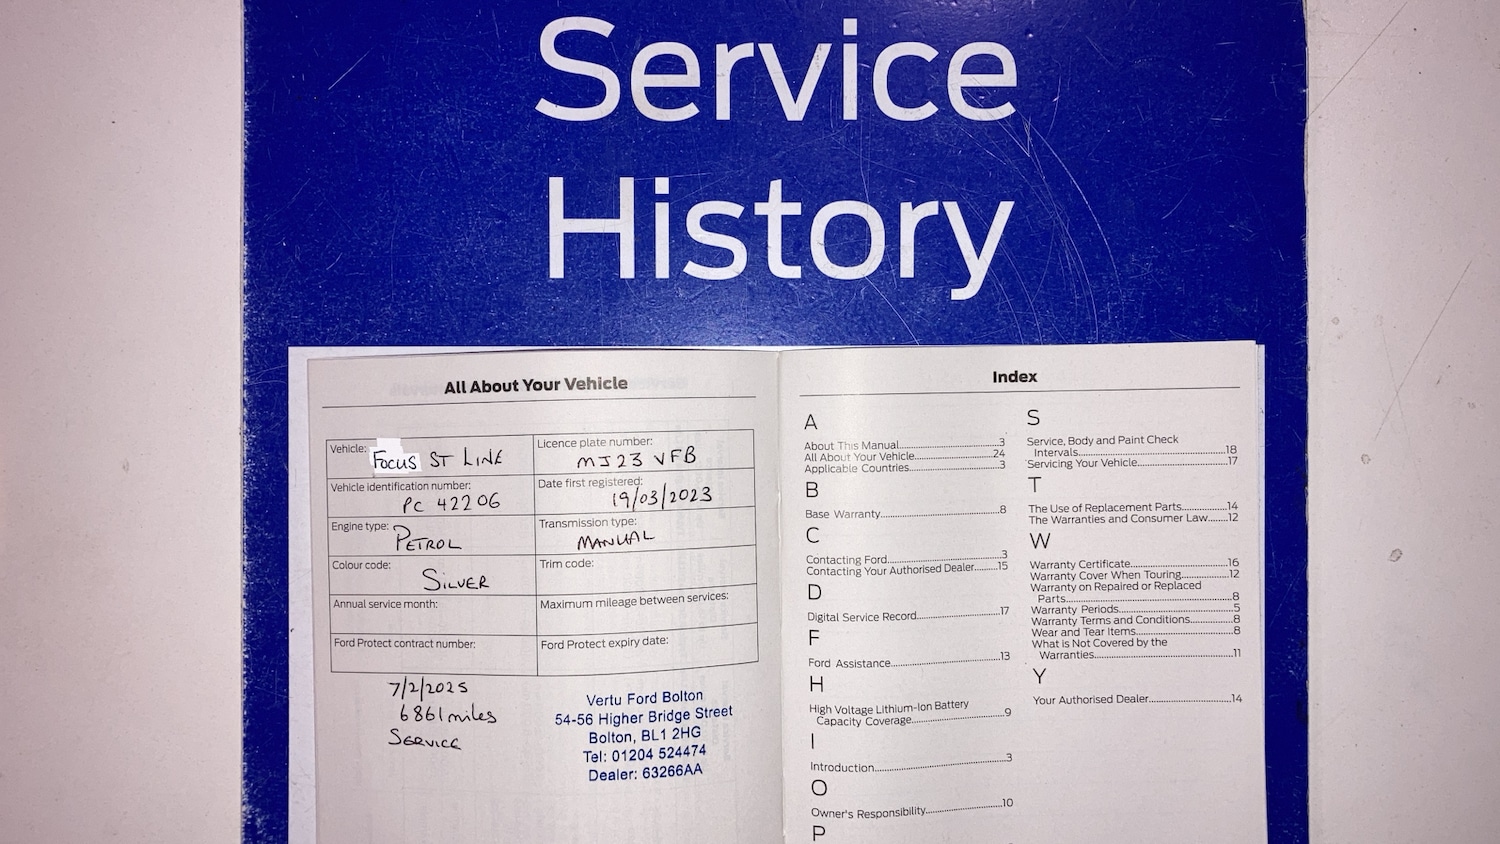 Service
History
All About Your Vehicle
Vehicle: Focus ST LINE
Licence plate number: MJ23 VFB
Vehicle identification number: PC 42206
Date first registered: 19/03/2023
Engine type: PETROL
Transmission type: MANUAL
Colour code: SILVER
Trim code:
Annual service month:
Maximum mileage between services:
Ford Protect contract number:
Ford Protect expiry date:
7/2/2025
6861 miles
SERVICE
Vertu Ford Bolton
54-56 Higher Bridge Street
Bolton, BL1 2HG
Tel: 01204 524474
Dealer: 63266AA
Index
A
About This Manual 3
All About Your Vehicle 24
Applicable Countries 3
B
Base Warranty 8
C
Contacting Ford 3
Contacting Your Authorised Dealer 15
D
Digital Service Record 17
F
Ford Assistance 13
H
High Voltage Lithium-Ion Battery
Capacity Coverage 9
I
Introduction 3
O
Owner's Responsibility 10
P
S
Service, Body and Paint Check
Intervals 18
Servicing Your Vehicle 17
T
The Use of Replacement Parts 14
The Warranties and Consumer Law 12
W
Warranty Certificate 16
Warranty Cover When Touring 12
Warranty on Repaired or Replaced
Parts 8
Warranty Periods 5
Warranty Terms and Conditions 8
Wear and Tear Items 8
What is Not Covered by the
Warranties 11
Y
Your Authorised Dealer 14